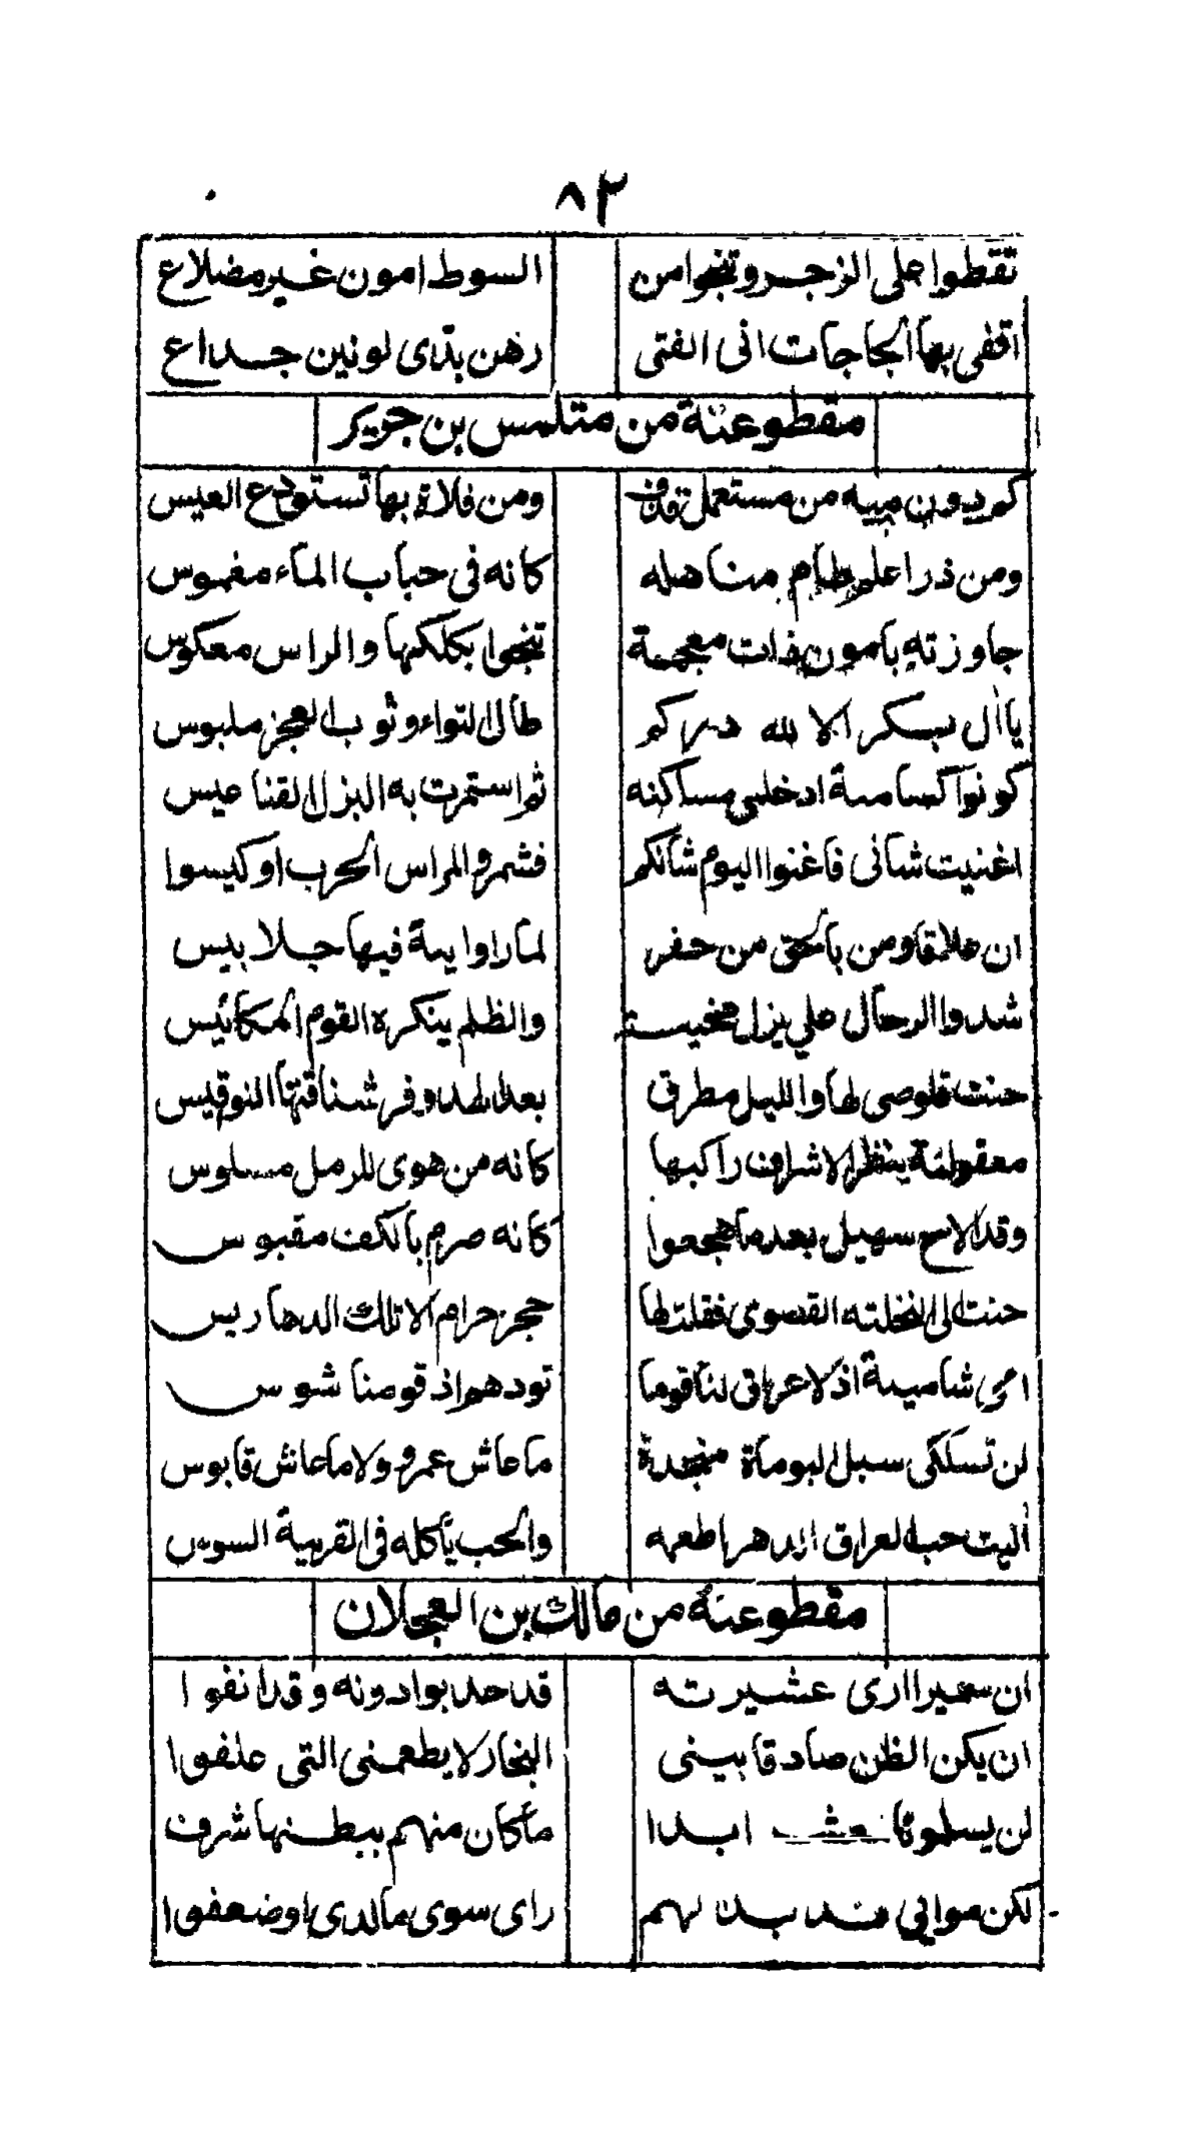 ٨٣
تقطوا على الزجر وتنجوا من السوط امون غير مضلاع
اقضى بها الحاجات انى الفتى رهن بذى لونين جداع
مقطوعنة من متلمس بن جرير
كم ميه من مستعمل قذف ومن فلاة بها تستودع العيس
ومن ذرا علم طام مناهله كانه فى حباب الماء مغموس
جاوزته بامون ذات معجمة تنجوا بكلكلها والراس معكوس
ياال بكر الا لله دركم طال الثواء وثوب العجز ملبوس
كونوا كسامة اد مساكنه ثم استمرت به البزل القنا عيس
اغنيت شانى فاغنوا اليوم شانكم فشمروا لمراس الحرب اوكيسوا
ان علافا ومن بالحق من حضر لما راوا ية فيها جلا بيس
شدوا الرحال علي بزل مخيسة والظلم ينكره القوم المكائيس
حنت قلوصى لها والليل مطرق بعد الهدو فرشناقتها النوقيس
معقولة ينظر الاشراف راكبها كانه من هوى للرمل مسلوس
وقد الاح سهيل بعد ما هجعوا كانه ضرم بالكف مقبوس
حنت الى النخلته القصوى فقلت لها حجز حرام الا تلك الدهاريس
امى شامية اذ لا عراق لنا قوما تودهم اذ قومنا شوس
لن تسلكى سبل البوماة منجدة ما عاش عمرو ولا ما عاش قابوس
اليت حب العراق الدهر اطعمه والحب يأكله فى القرية السوس
مقطوعنة من مالك بن العجلان
ان سميرا ارى عشيرته قد حدبوا دونه وقد انفوا
ان يكن الظن صادقا ببنى النجار لا يطعمنى التى علفوا
لن يسلمونا ابدا ما كان منهم ببطنها شرف
لكن موالي بدا لهم راى سوى مالدى اوضعفوا